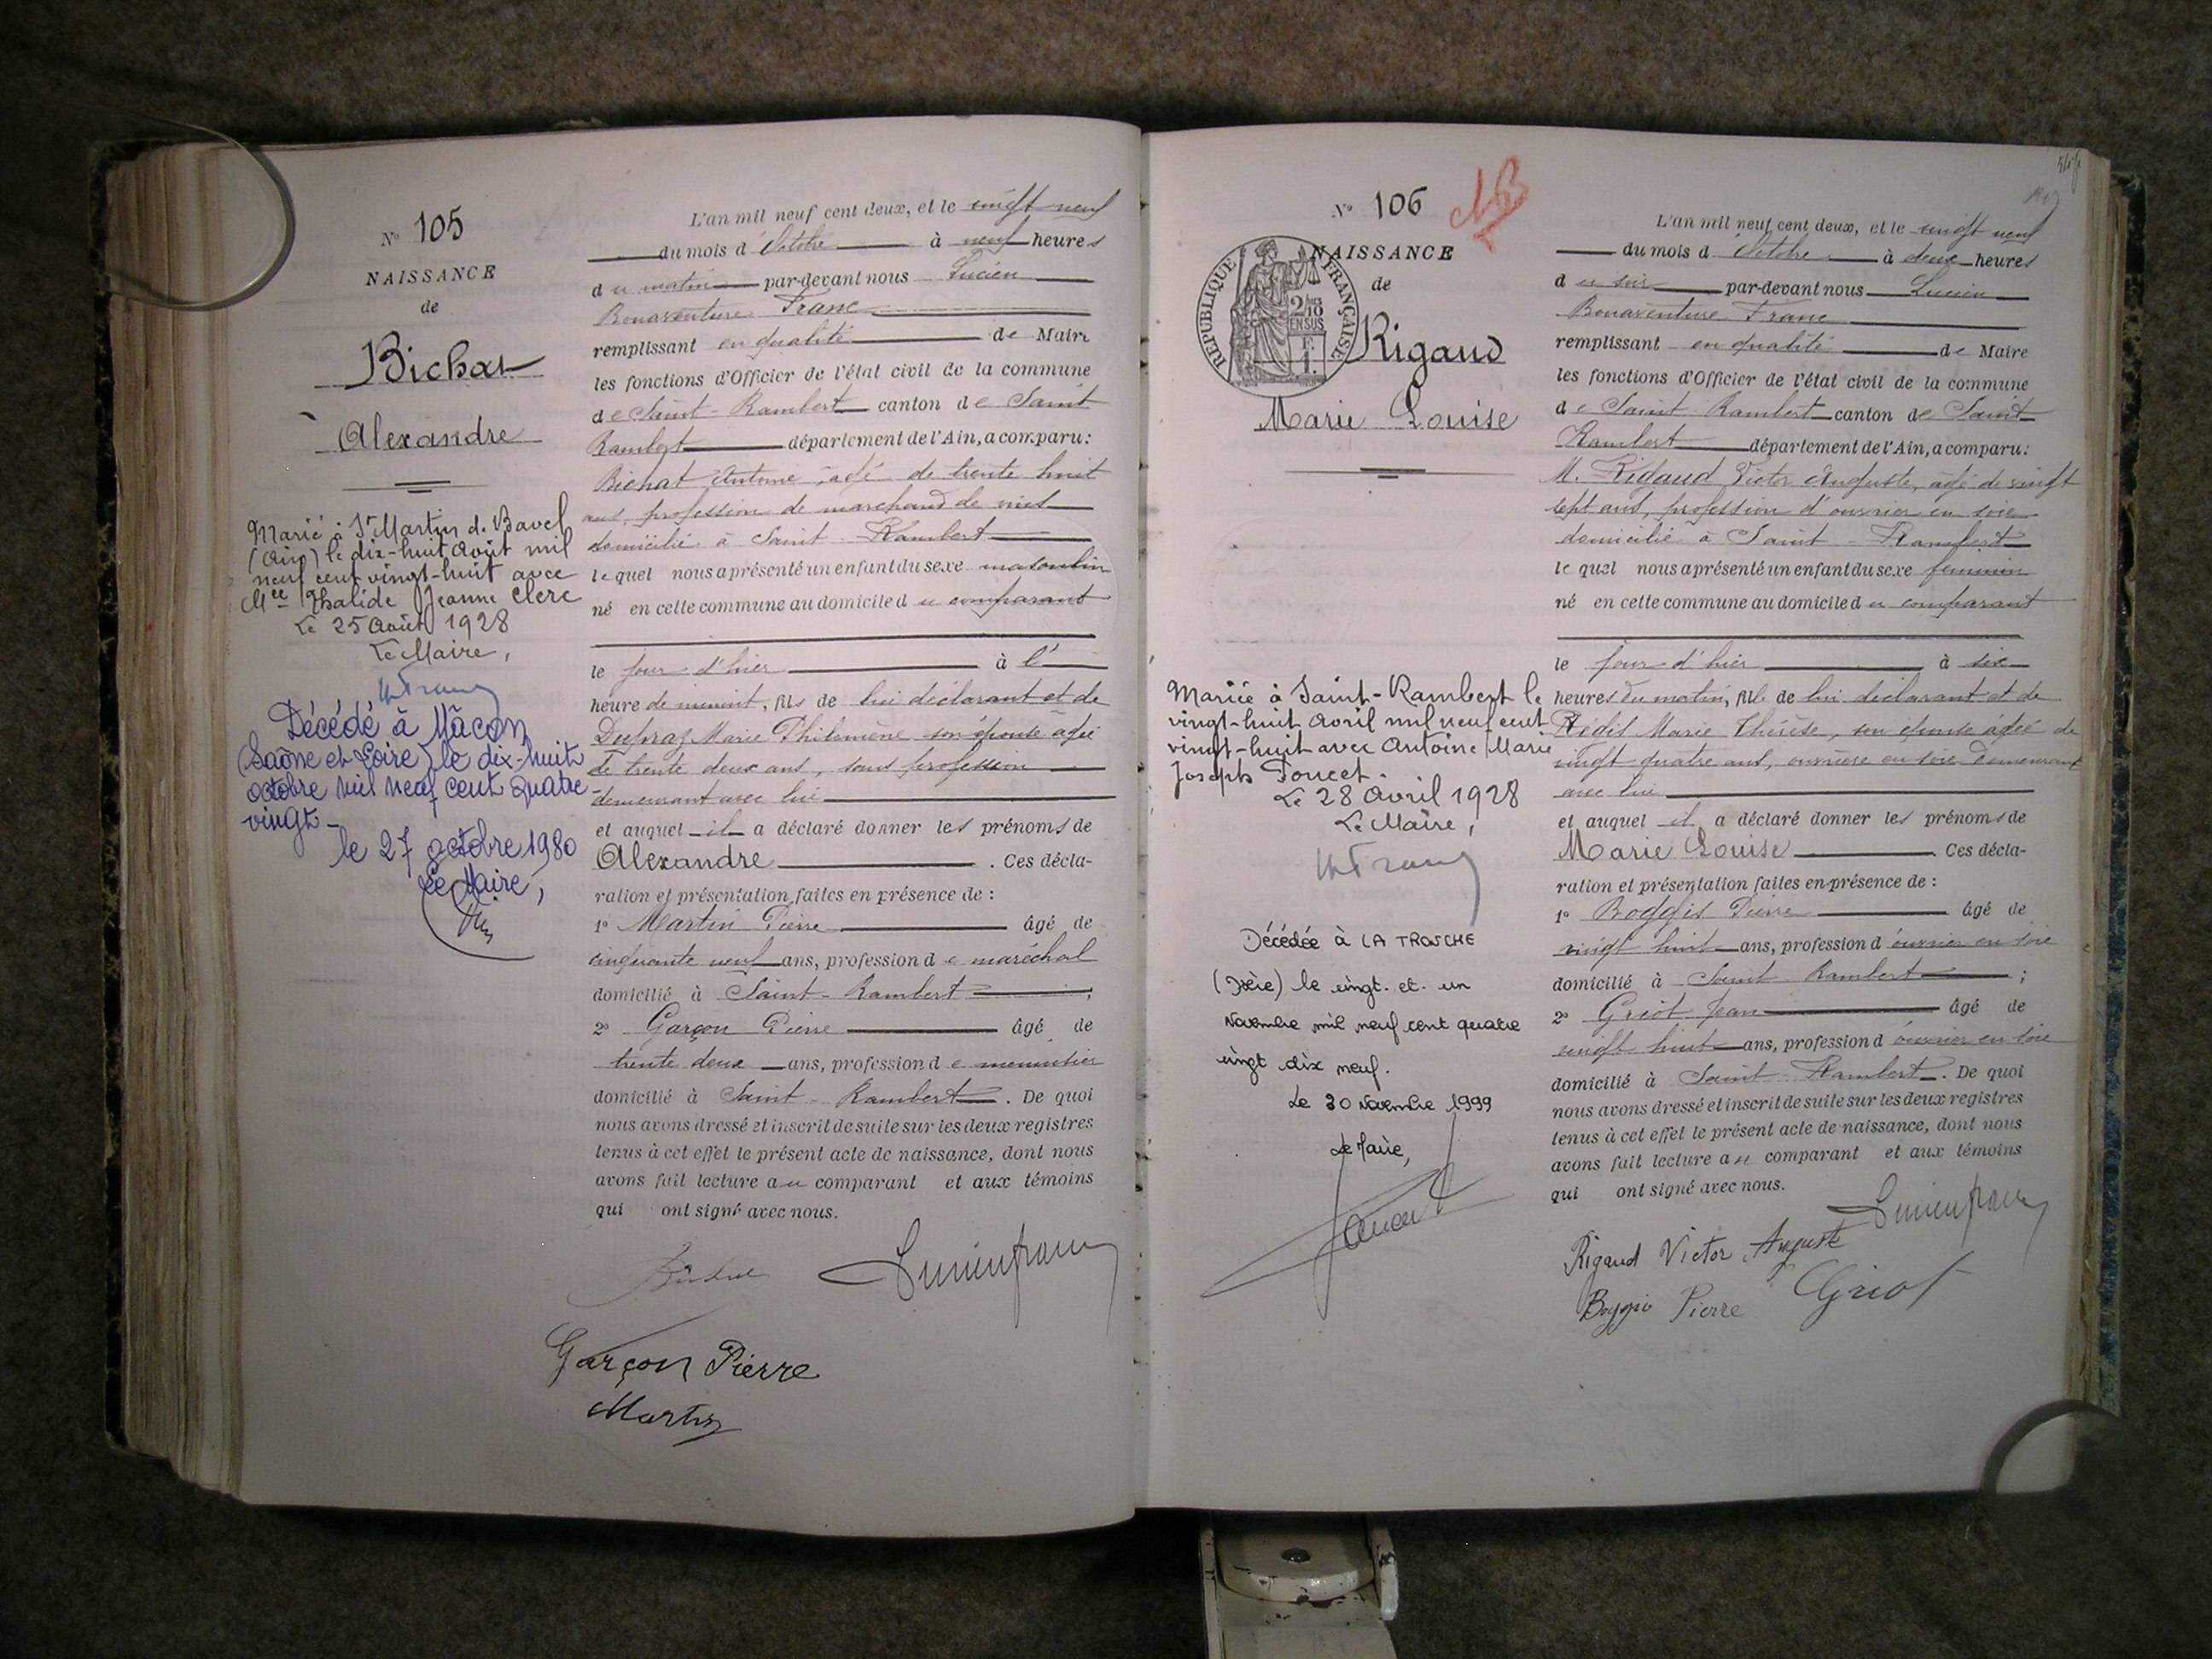 N° 105
NAISSANCE
de
Bichat
Alexandre
Marié à St Martin de Bavel
(Ain) le dix-huit Août mil
neuf cent vingt-huit avec
Mée Thalide Jeanne Clerc
Le 25 Août 1928
Le Maire,
Décédé à Mâcon
(Saône et Loire) le dix-huit
octobre mil neuf cent quatre-
vingt-
le 27 octobre 1980
Le Maire,
L'an mil neuf cent deux, et le vingt neuf
du mois d'Octobre à neuf heures
du matin par-devant nous Lucien
Bonaventure Franc
remplissant en qualité de Maire
les fonctions d'Officier de l'état civil de la commune
de Saint-Rambert canton de Saint
Rambert département de l'Ain, a comparu:
Bichat Antoine, âgé de trente huit
ans, profession de marchand de vins
domicilié à Saint-Rambert
lequel nous a présenté un enfant du sexe masculin
né en cette commune au domicile du comparant
le jour d'hier à l'
heure de minuit, fils de lui déclarant et de
Dupraz Marie Philomène son épouse âgée
de trente deux ans, sans profession
demeurant avec lui
et auquel il a déclaré donner les prénoms de
Alexandre. Ces décla-
ration et présentation faites en présence de :
1° Martin Pierre âgé de
cinquante neuf ans, profession de maréchal
domicilié à Saint-Rambert;
2° Garçon Pierre âgé de
trente deux ans, profession de menuisier
domicilié à Saint-Rambert. De quoi
nous avons dressé et inscrit de suite sur les deux registres
tenus à cet effet le présent acte de naissance, dont nous
avons fait lecture au comparant et aux témoins
qui ont signé avec nous.
Lucien franc
Garçon Pierre
Martin
N° 106
NAISSANCE
de
RÉPUBLIQUE FRANÇAISE
2/10
EN SUS
Rigaud
Marie Louise
Mariée à Saint-Rambert le
vingt-huit Avril mil neuf cent
vingt-huit avec Antoine Marie
Joseph Poncet.
Le 28 Avril 1928
Le Maire,
Décédée à LA TRONCHE
(Isère) le vingt et un
Novembre mil neuf cent quatre
vingt dix neuf.
Le 30 Novembre 1999
Le Maire,
L'an mil neuf cent deux, et le vingt neuf
du mois d'Octobre à deux heures
du soir par-devant nous Lucien
Bonaventure Franc
remplissant en qualité de Maire
les fonctions d'Officier de l'état civil de la commune
de Saint-Rambert canton de Saint
Rambert département de l'Ain, a comparu:
M. Rigaud Victor Auguste, âgé de vingt
sept ans, profession d'ouvrier en soie
domicilié à Saint-Rambert
lequel nous a présenté un enfant du sexe féminin
né en cette commune au domicile du comparant
le jour d'hier à six
heures du matin, fille de lui déclarant et de
Régis Marie Thérèse, son épouse âgée de
vingt quatre ans, ouvrière en soie demeurant
avec lui
et auquel il a déclaré donner les prénoms de
Marie Louise. Ces décla-
ration et présentation faites en présence de :
1° Boggis Pierre âgé de
vingt huit ans, profession d'ouvrier en soie
domicilié à Saint-Rambert;
2° Griot Jean âgé de
vingt huit ans, profession d'ouvrier en soie
domicilié à Saint-Rambert. De quoi
nous avons dressé et inscrit de suite sur les deux registres
tenus à cet effet le présent acte de naissance, dont nous
avons fait lecture au comparant et aux témoins
qui ont signé avec nous.
Lucien franc
Rigaud Victor Auguste
Boggio Pierre Griot